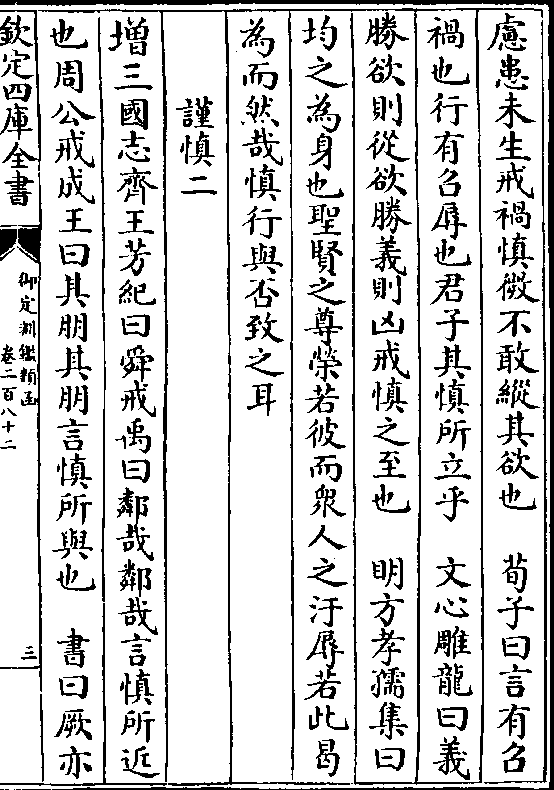 慮患未生戒禍慎微不敢縱其欲也　荀子曰言有召
禍也行有召辱也君子其慎所立乎　文心雕龍曰義
勝欲則從欲勝義則凶戒慎之至也　明方孝孺集曰
均之為身也聖賢之尊榮若彼而衆人之汙辱若此曷
為而然哉慎行與否致之耳
謹慎二
增三國志齊王芳紀曰舜戒禹曰鄰哉鄰哉言慎所近
也周公戒成王曰其朋其朋言慎所與也　書曰厥亦
欽定四庫全書
御定淵鑑類函
卷二百八十二
三